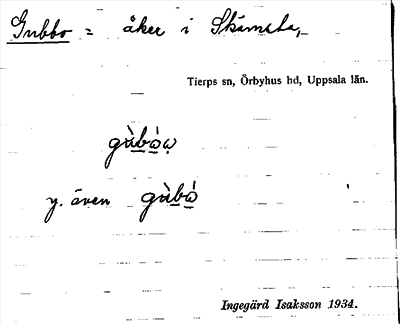 Gubbo = åker i Skämsta,
Tierps sn, Örbyhus hd, Uppsala län.
gùbówͅ
y. även gùbó
Ingegärd Isaksson 1934.